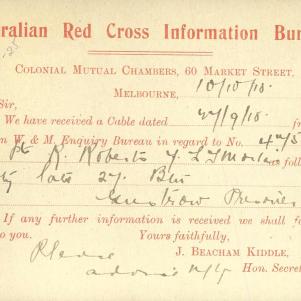 ralian Red Cross Information Bur
COLONIAL MUTUAL CHAMBERS, 60 MARKET STREET,
MELBOURNE, 10/10/18.
Sir,
We have received a Cable dated 27/9/18. fr
n W & M. Enquiry Bureau in regard to No.
Pte R. Roberts follo
late 27 Btn
If any further information is received we shall fo
o you. Yours faithfully,
J. BEACHAM KIDDLE,
Please Hon. Secret